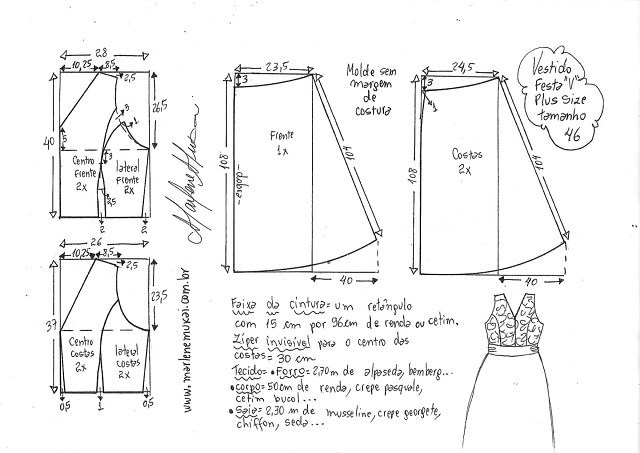 28
10,25
8,5
2,5
3
1
26,5
5
3
40
Centro
frente
2x
lateral
frente
2x
2,5
2
2
26
10,25
8,5
2,5
23,5
37
Centro
costas
2x
lateral
costas
2x
0,5
1
0,5
Marlene Mukai
www.marlenemukai.com.br
23,5
3
Frente
1x
108
104
40
Molde sem
margem
de
costura
24,5
3
1
Costas
2x
108
104
40
Vestido
Festa "V"
Plus Size
tamanho
46
Faixa da cintura= um retângulo
com 15 cm por 96cm de renda ou cetim.
Zíper invisível para o centro das
costas= 30 cm
Tecido= •Forro= 2,70m de alpaseda, bemberg...
•corpo= 50cm de renda, crepe pasquale,
cetim bucol...
•saia= 2,30 m de musseline, crepe georgete,
chiffon, seda...